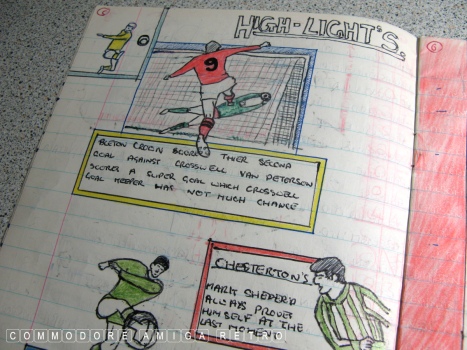 HIGH-LIGHT'S.
6
6
9
BUXTON CROWN SCORE THIER SECOND
GOAL AGAINST CROSSWELL VAN PETERSON
SCORES A SUPER GOAL WHICH CROSSWELL
GOAL KEEPER WAS NOT MUCH CHANCE
CHESTERTON'S
MARK SHEPERD
ALWAYS PROVES
HIMSELF AT THE
LAST MOMENT
COMMODORE AMIGA RETRO